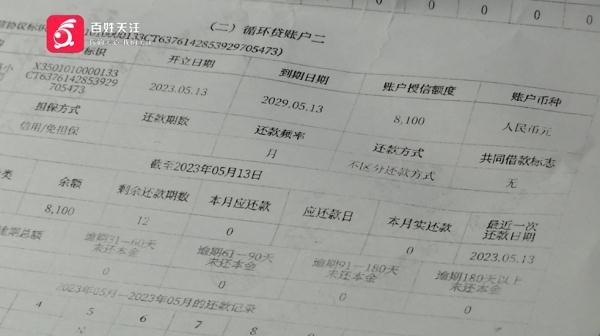 百姓天汪
(二) 循环贷账户二
10100000133CT6376142853929705473)
标识 开立日期 到期日期 账户授信额度 账户币种
X3501010000133
CT6376142853929
705473 2023.05.13 2029.05.13 8,100 人民币元
担保方式 还款期数 还款频率 还款方式 共同借款标志
信用/免担保 月 不区分还款方式 无
截至2023年05月13日
类 余额 剩余还款期数 本月应还款 应还款日 本月实还款 最近一次
还款日期
8,100 12 0 0 2023.05.13
逾期总额 逾期31—60天
未还本金 逾期61—90天
未还本金 逾期91—180天
未还本金 逾期180天以上
未还本金
0 0 0 0
2023年05月—2023年05月的还款记录
4 5 6 7 8